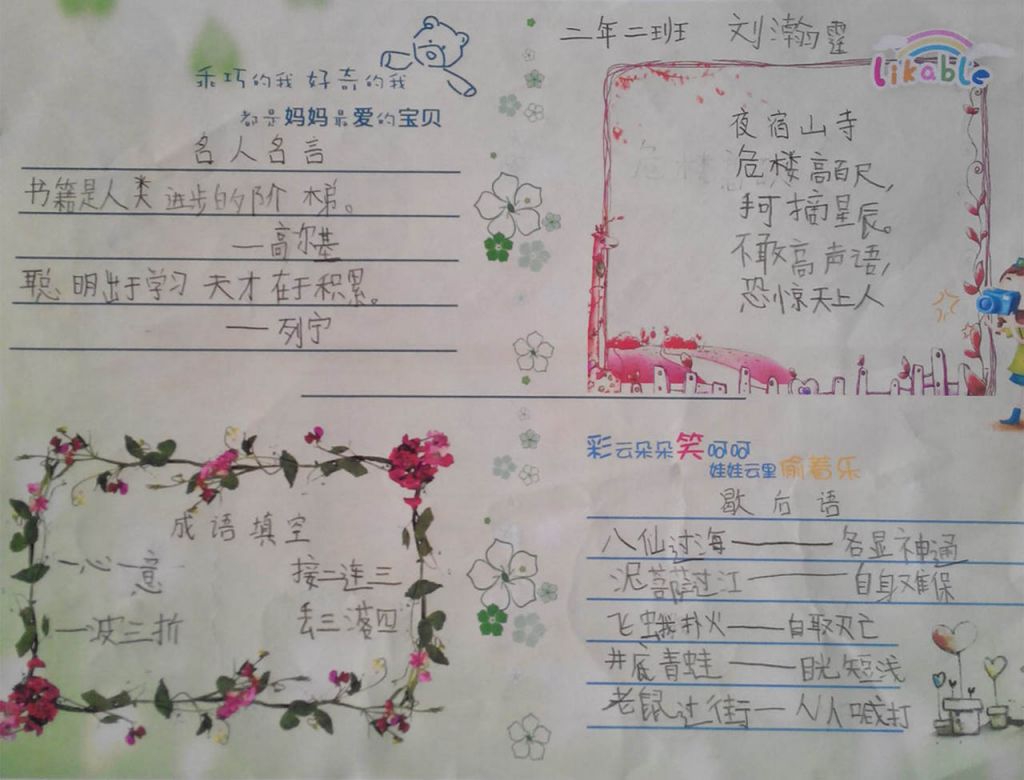 乖巧的我 好奇的我
都是妈妈最爱的宝贝
名人名言
书籍是人类进步的阶梯。
—高尔基
聪明出于学习 天才在于积累。
—列宁
二年二班 刘瀚霆
likable
夜宿山寺
危楼高百尺,
手可摘星辰。
不敢高声语,
恐惊天上人
成语填空
一心一意 接二连三
一波三折 丢三落四
彩云朵朵笑呵呵
娃娃云里偷着乐
歇后语
八仙过海——各显神通
泥菩萨过江——自身难保
飞蛾扑火——自取灭亡
井底青蛙——目光短浅
老鼠过街—人人喊打